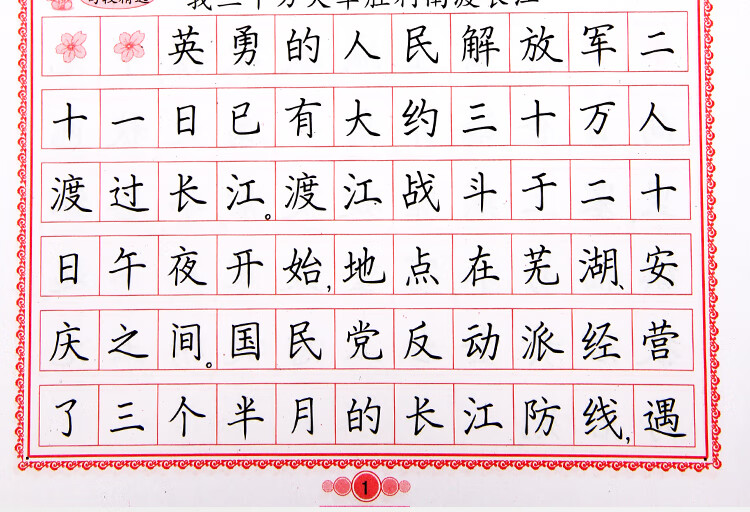 我三十万大军胜利南渡长江
英勇的人民解放军二
十一日已有大约三十万人
渡过长江。渡江战斗于二十
日午夜开始,地点在芜湖、安
庆之间。国民党反动派经营
了三个半月的长江防线,遇
1